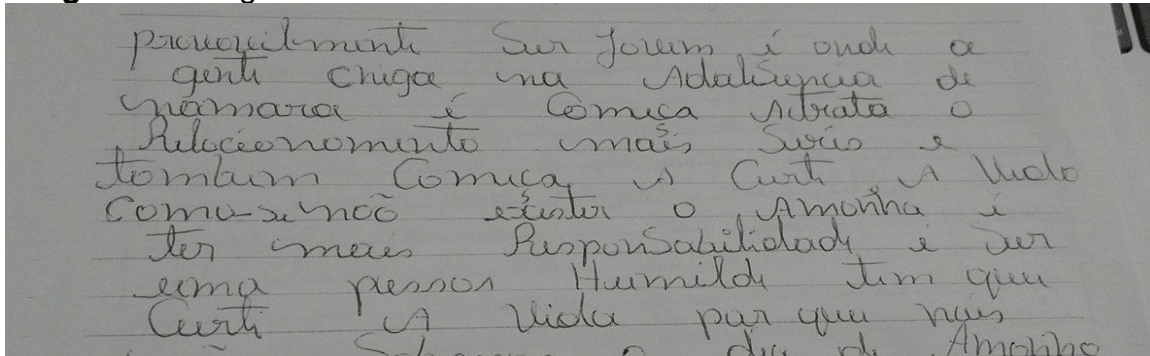 provavelmente Ser Jovem i onde a
gente chega na Adolisencia de
namara é Comeca Atrata o
Relacionomento mais Serio e
tombem Comeca A Curti A Vida
Como se não existir o Amonhã i
ter mais Responsabilidade i Ser
uma pessoa Humilde tem que
Curti A Vida por que nois
dia de Amonhã